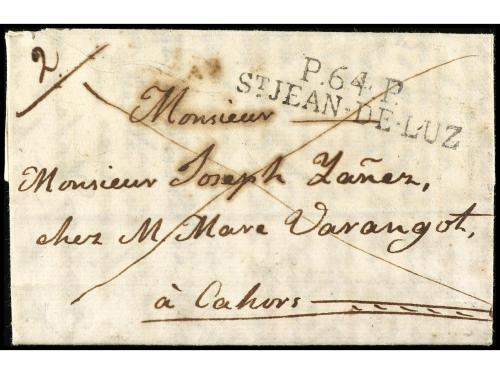 2
P.64.P.
ST JEAN-DE-LUZ
Monsieur
Monsieur Joseph Yañez,
chez M. Marc Varangot,
à Cahors